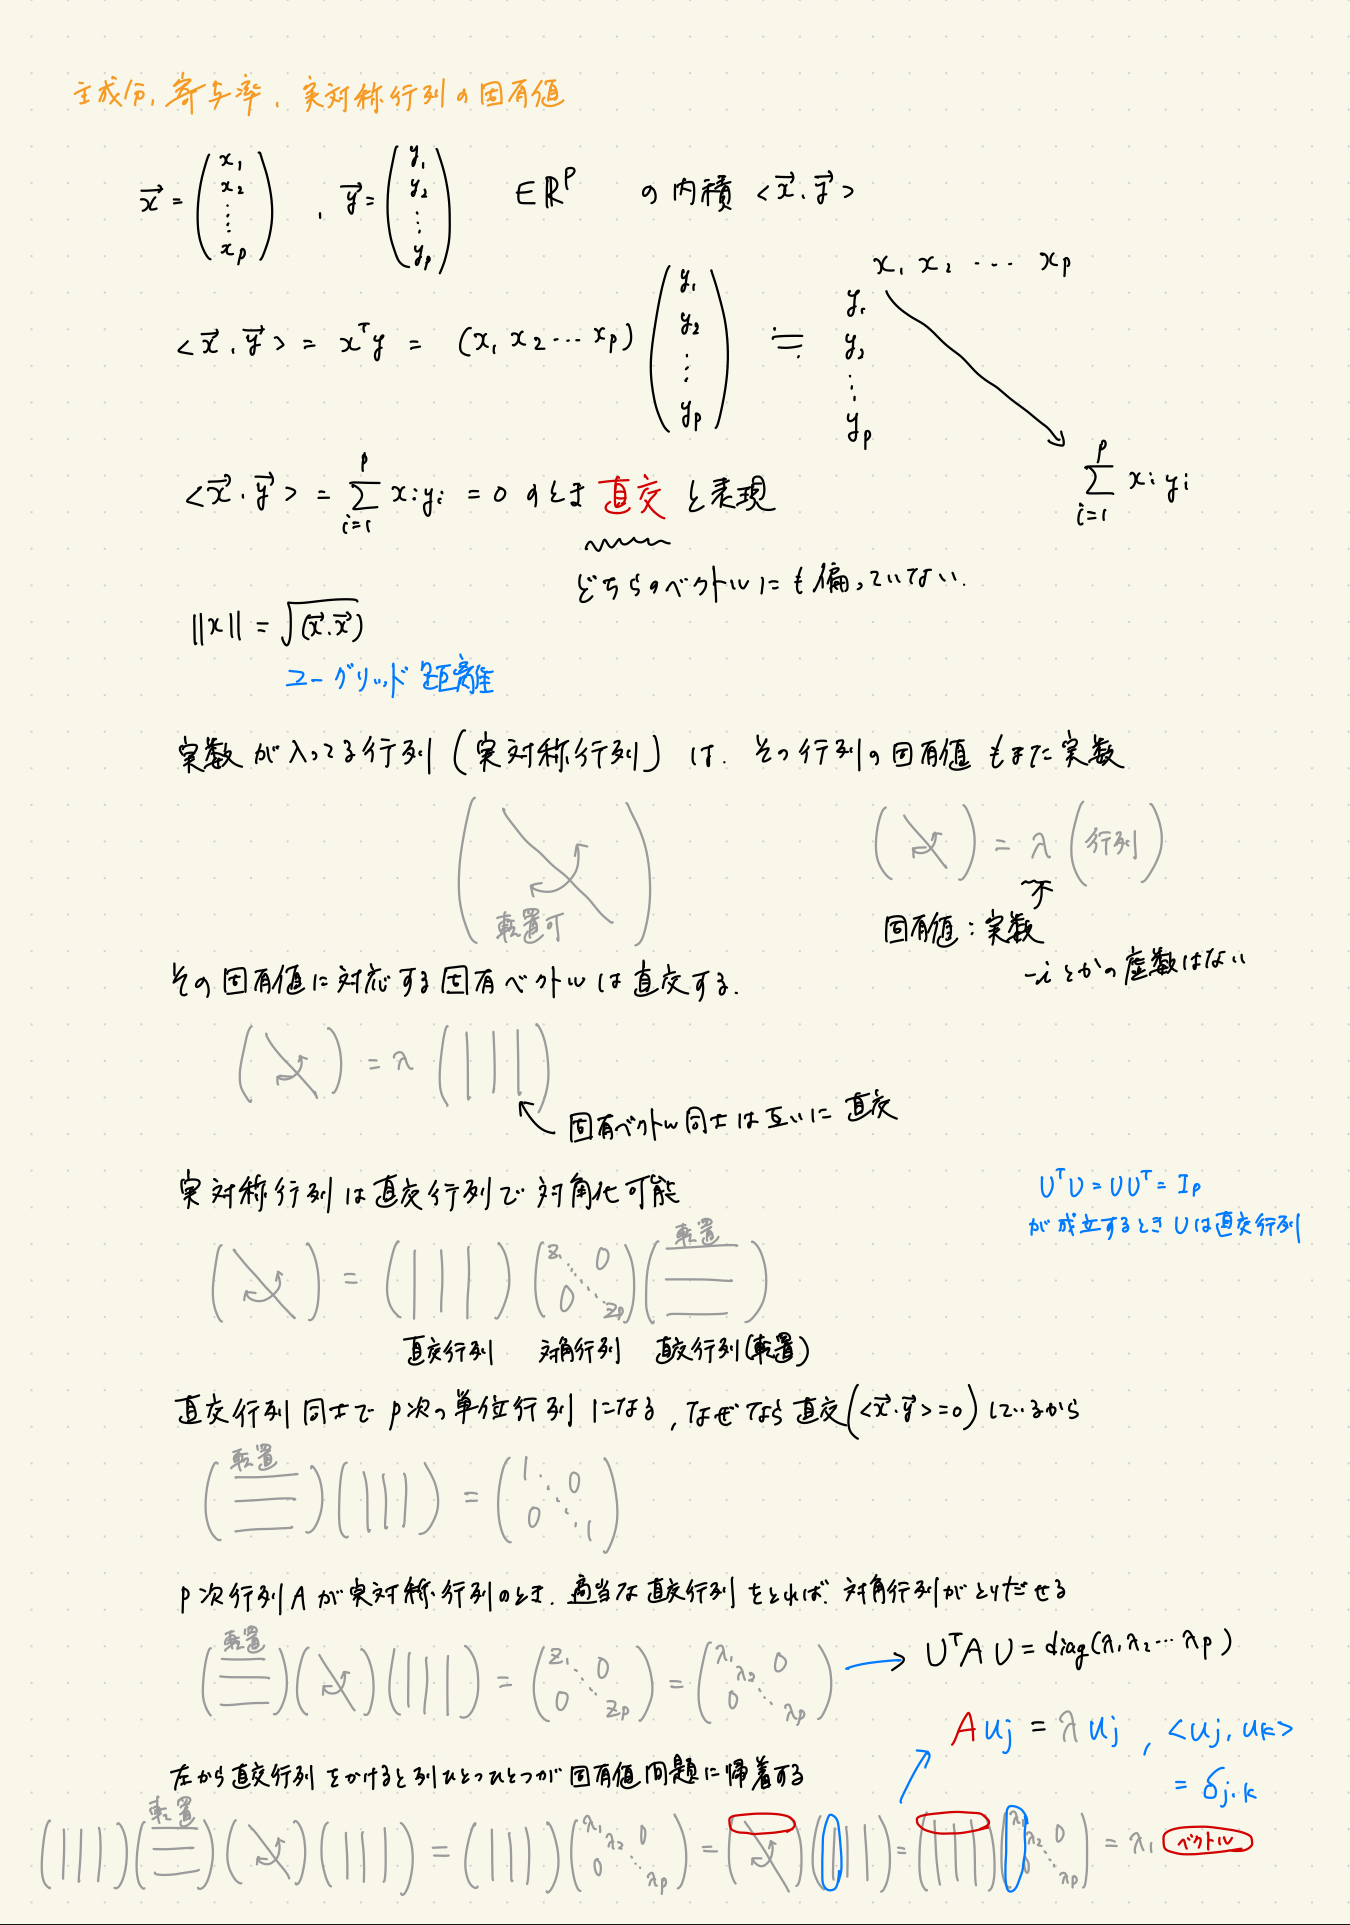 主成分, 寄与率, 実対称行列の固有値
x⃗ = (x₁ x₂ ⋮ xₚ) , y⃗ = (y₁ y₂ ⋮ yₚ) ∈ ℝᵖ の内積 <x⃗, y⃗>
<x⃗, y⃗> = xᵀy = (x₁ x₂ … xₚ) (y₁ y₂ ⋮ yₚ) ≒ y₁ y₂ ⋮ yₚ x₁ x₂ … xₚ
∑_{i=1}^{p} xᵢ yᵢ
<x⃗, y⃗> = ∑_{i=1}^{p} xᵢyᵢ = 0 のとき 直交 と表現
どちらのベクトルにも偏っていない.
‖x‖ = √(x⃗, x⃗)
ユーグリッド距離
実数が入ってる行列 (実対称行列) は, その行列の固有値もまた実数
転置可
( ) = λ (行列)
固有値 : 実数
-iとかの虚数はない
その固有値に対応する固有ベクトルは直交する.
( ) = λ ( )
固有ベクトル同士は互いに直交
実対称行列は直交行列で対角化可能
UᵀU = UUᵀ = Iₚ
が成立するときUは直交行列
転置
( ) = ( ) (z₁ 0 ⋱ 0 zₚ) ( )
直交行列 対角行列 直交行列(転置)
直交行列同士でp次の単位行列になる, なぜなら直交(<x⃗, y⃗> = 0)しているから
転置
( ) ( ) = (1 0 ⋱ 0 1)
p次行列Aが実対称行列のとき, 適当な直交行列をとれば, 対角行列がとりだせる
転置
( ) ( ) ( ) = (z₁ 0 ⋱ 0 zₚ) = (λ₁ λ₂ 0 ⋱ 0 λₚ) → UᵀAU = diag(λ₁ λ₂ … λₚ)
Auj = λuj , <uj, uk>
= δj,k
左から直交行列をかけると列ひとつひとつが固有値問題に帰着する
転置
( ) ( ) ( ) ( ) = ( ) (λ₁ λ₂ 0 ⋱ 0 λₚ) = ( ) ( ) = ( ) (λ₁ λ₂ 0 ⋱ 0 λₚ) = λ₁ ベクトル